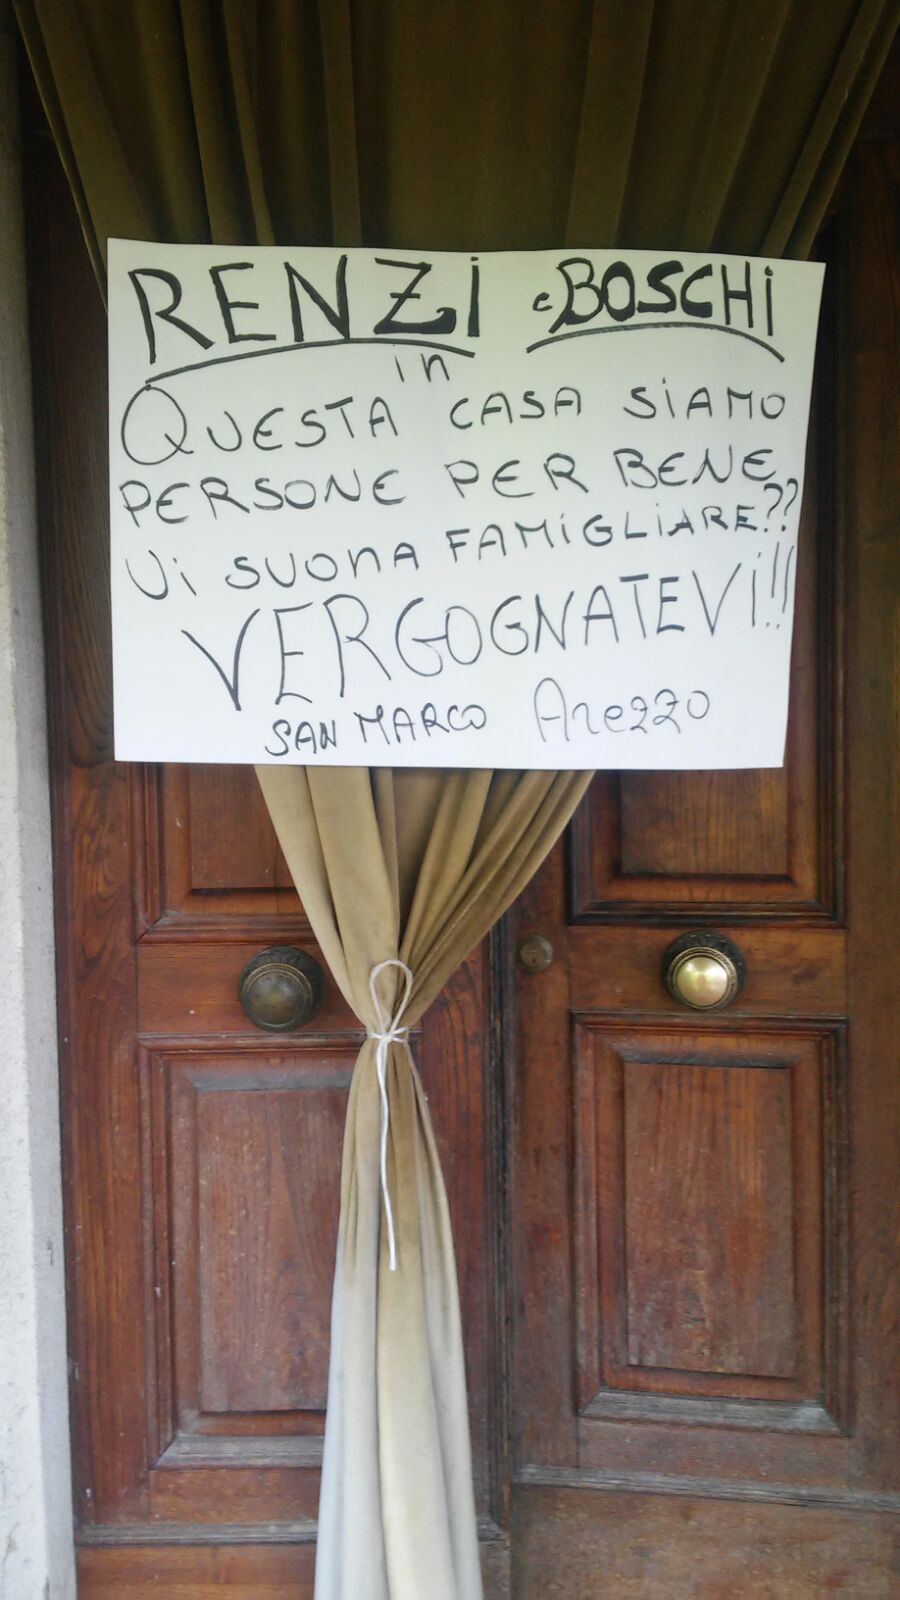 RENZi e BOSCHi
in
QUESTA CASA SiAMO
PERSONE PER BENE
Vi SUONA FAMiGLiARE??
VERGOGNATEVi!!!
SAN MARCO Arezzo